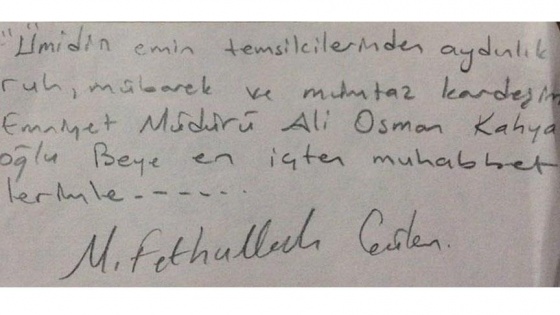 "Ümidin emin temsilcilerinden aydınlık
ruh, mübarek ve mümtaz kardeşim
Emniyet Müdürü Ali Osman Kahya
oğlu Beye en içten muhabbet
lerimle-------
M. Fethullah Gülen.